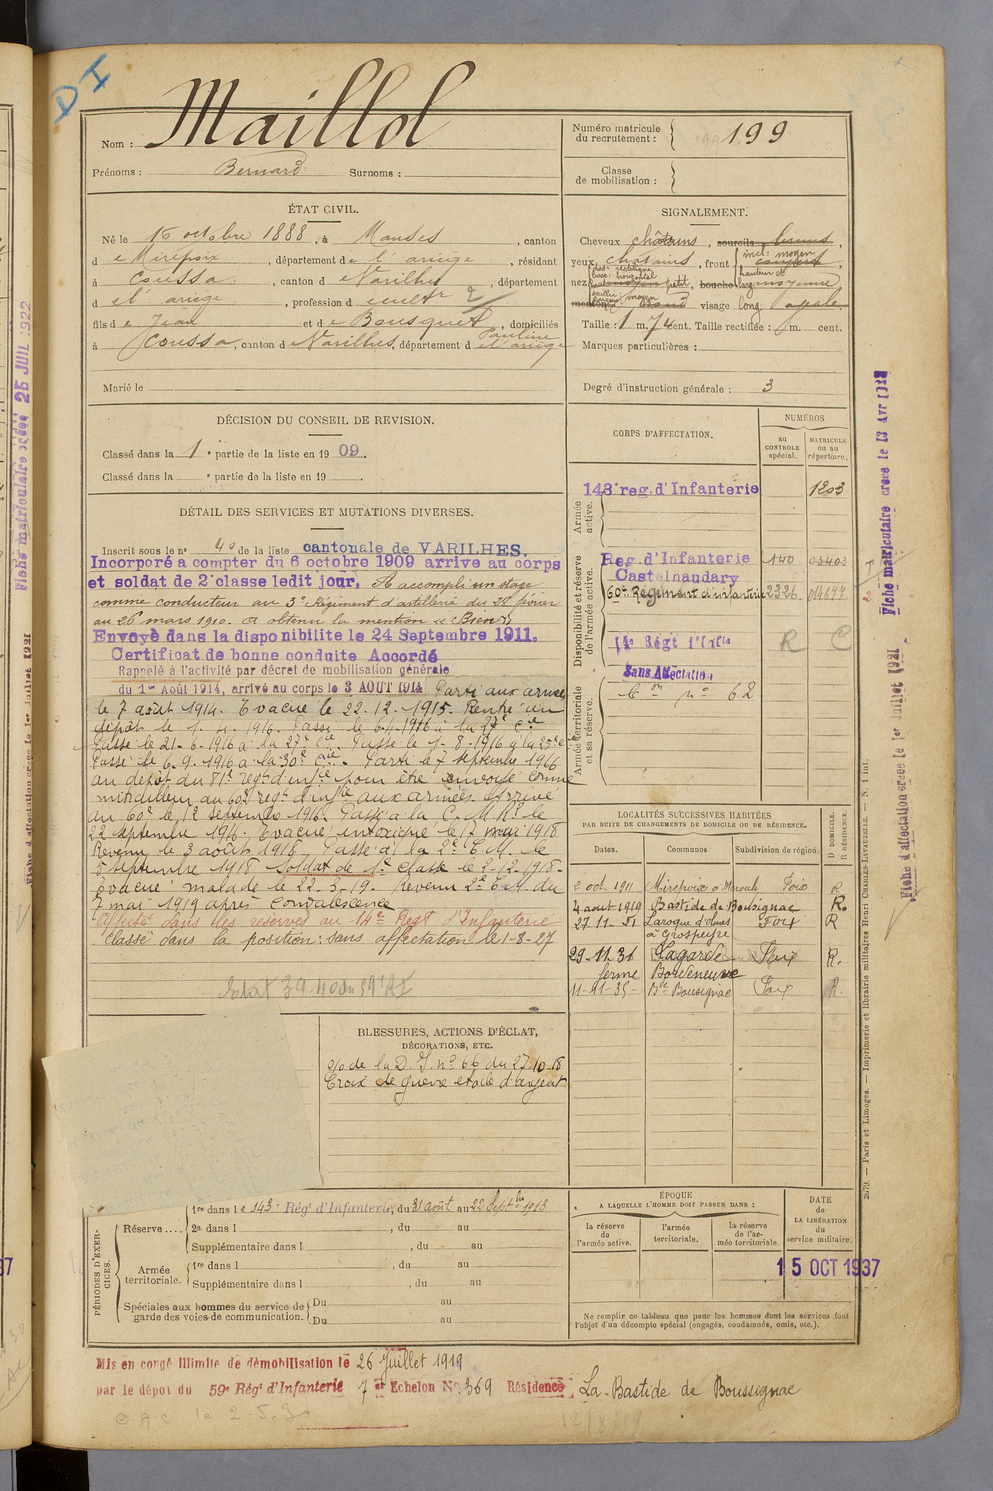 D I
Nom : Maillol
Prénoms : Bernard Surnoms :
Numéro matricule du recrutement : 199
Classe de mobilisation :
ÉTAT CIVIL.
Né le 16 octobre 1888, à Manses, canton
de Mirepoix, département de l'ariège, résidant
à Coussa, canton de Varilhes, département
d el' ariège, profession de cultr 2
fils de Jean et de Bousquet Pauline, domiciliés
à Coussa, canton de Varilhes, département d el'ariège
Marié le
SIGNALEMENT.
Cheveux châtains, sourcils bruns,
yeux chatains, front incl: moyen
hauteur do larg moyenne
nez dos: rectiligne base: horizontal petit, bouche moyenne
menton rond visage long ovale
Taille : 1 m. 74 cent. Taille rectifiée : m. cent.
Marques particulières :
Degré d'instruction générale : 3
DÉCISION DU CONSEIL DE REVISION.
Classé dans la 1e partie de la liste en 1909.
Classé dans la e partie de la liste en 19
DÉTAIL DES SERVICES ET MUTATIONS DIVERSES.
Inscrit sous le no 40 de la liste cantonale de VARILHES.
Incorporé a compter du 6 octobre 1909 arrive au corps
et soldat de 2e classe ledit jour. A accompli un stage
comme conducteur au 3e Régiment d'astillerie du 28 février
au 26 mars 1910. a obtenu la mention "Bien"
Envoyé dans la disponibilite le 24 Septembre 1911.
Certificat de bonne conduite Accordé
Rappelé à l'activité par décret de mobilisation générale
du 1er Août 1914, arrivé au corps le 3 AOUT 1914 Parti aux armées
le 7 août 1914. Evacué le 22.12.1915. Rentré au
dépôt le 1. 4. 1916. Passé le 6.4.1916 à la 27e Cie
Passé le 21-6-1916 à la 27e Cie. Passé le 1-8-1916 à la 25e Cie
Passé le 6.9.1916 à la 30e Cie. Parti le 7 septembre 1916
au dépôt du 81e regt d'infie pour être envoyé comme
mitrailleur au 60e regt d'infie aux armées. Arrivé
au 60e le 12 septembre 1916. Passé à la C.M.R. le
22 septembre 1916. Evacué intoxiqué le 17 mai 1918
Revenu le 3 août 1918. Passé à la 2e C.M. le
5 septembre 1918. Soldat de 1e classe le 2-12-1918.
Evacué malade le 22.3.19. Revenu 2e C.M. du
7 mai 1919 après convalescence
Affecté dans les réserves au 14e Regt d'Infanterie
Classé dans la position: sans affectation le 1-8-27
39.40 du 59e RI
CORPS D'AFFECTATION.
NUMÉROS
au CONTROLE spécial.
MATRICULE ou au répertoire.
Armée active.
143e reg. d'Infanterie 1203
Disponibilité et réserve de l'armée active.
Reg. d'Infanterie 140 03403
Castelnaudary
60e Régiment d'infanterie 2326 014477
14e Régt d'Infie R C
Sans Affectation
Armée territoriale et sa réserve.
no 62
LOCALITÉS SUCCESSIVES HABITÉES
PAR SUITE DE CHANGEMENTS DE DOMICILE OU DE RÉSIDENCE.
Dates. Communes Subdivision de région. D DOMICILE. R RÉSIDENCE.
2 oct. 1911 Mirepoix Foix R
4 août 1919 Bastide de Bousignac R.
27.11.21 Laroque d'Olmes Foix R
à Grospeyre
29-11.31 Lagarde Foix R.
ferme Bordeneuve
11-11-35- Bde Bousignac Foix R.
BLESSURES, ACTIONS D'ÉCLAT,
DÉCORATIONS, ETC.
o/o de la D.I. no 66 du 27.10.18
Croix de guerre etoile d'argent
PÉRIODES D'EXERCICES.
Réserve....
1re dans le 143e Régt d'Infanterie, du 31 août au 22 Septbre 1913
2e dans l , du au
Supplémentaire dans l , du au
Armée territoriale.
1re dans l , du au
Supplémentaire dans l , du au
Spéciales aux hommes du service de garde des voies de communication.
Du au
Du au
ÉPOQUE
A LAQUELLE L'HOMME DOIT PASSER DANS :
la réserve de l'armée active.
l'armée territoriale.
la réserve de l'armée territoriale.
DATE de LA LIBÉRATION du service militaire.
15 OCT 1937
Ne remplir ce tableau que pour les hommes dont les services font
l'objet d'un décompte spécial (engagés, condamnés, omis, etc.).
Mis en congé illimité de démobilisation le 26 Juillet 1919
par le dépôt du 59e Régt d'Infanterie 7er Echelon No 369 Résidence La Bastide de Boussignac
12/8/19
2679. — Paris et Limoges. — Imprimerie et librairie militaires Henri CHARLES-LAVAUZELLE. — N. 1 int.
Fiche matriculaire créée le 13 Avr 1928
Fiche d'affectation créée le 1er Juillet 1921
Fiche matriculaire créée 25 JUIL 1922
Fiche d'affectation créée le 1er Juillet 1921